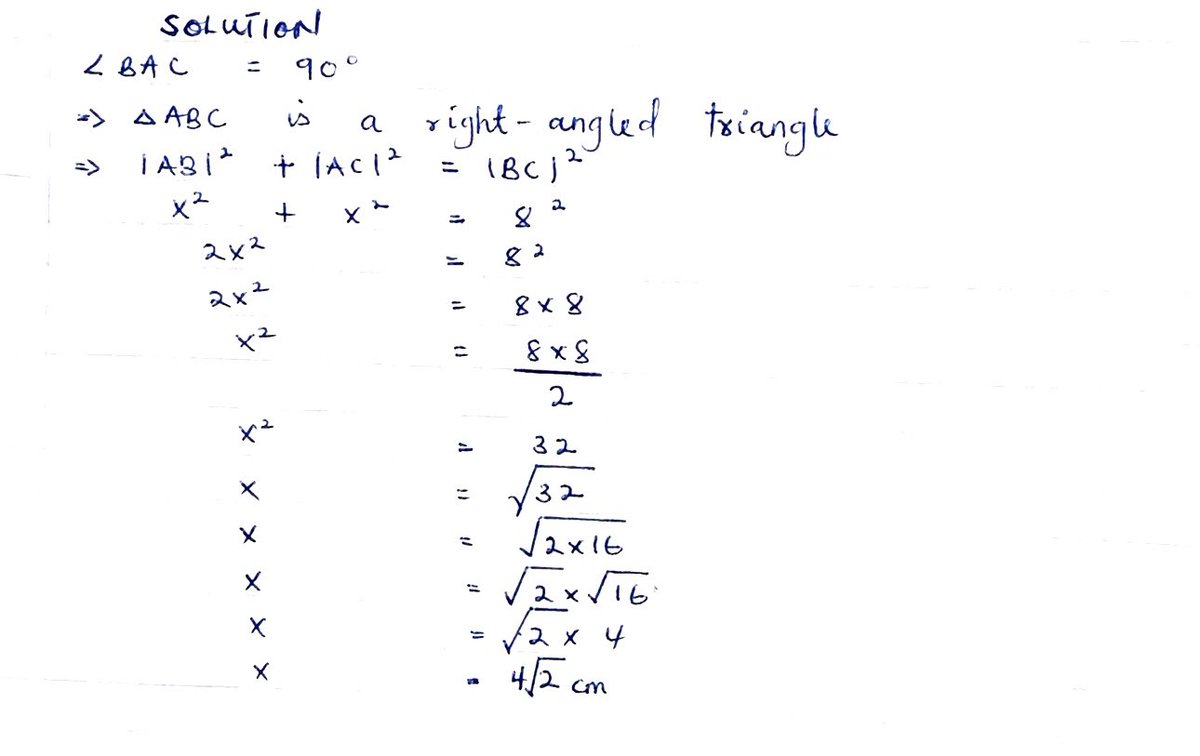 SOLUTION
∠BAC = 90°
=> △ABC is a right-angled triangle
=> |AB|² + |AC|² = |BC|²
x² + x² = 8²
2x² = 8²
2x² = 8 x 8
x² = 8 x 8
2
x² = 32
x = √32
x = √2x16
x = √2 x √16
x = √2 x 4
x = 4√2 cm